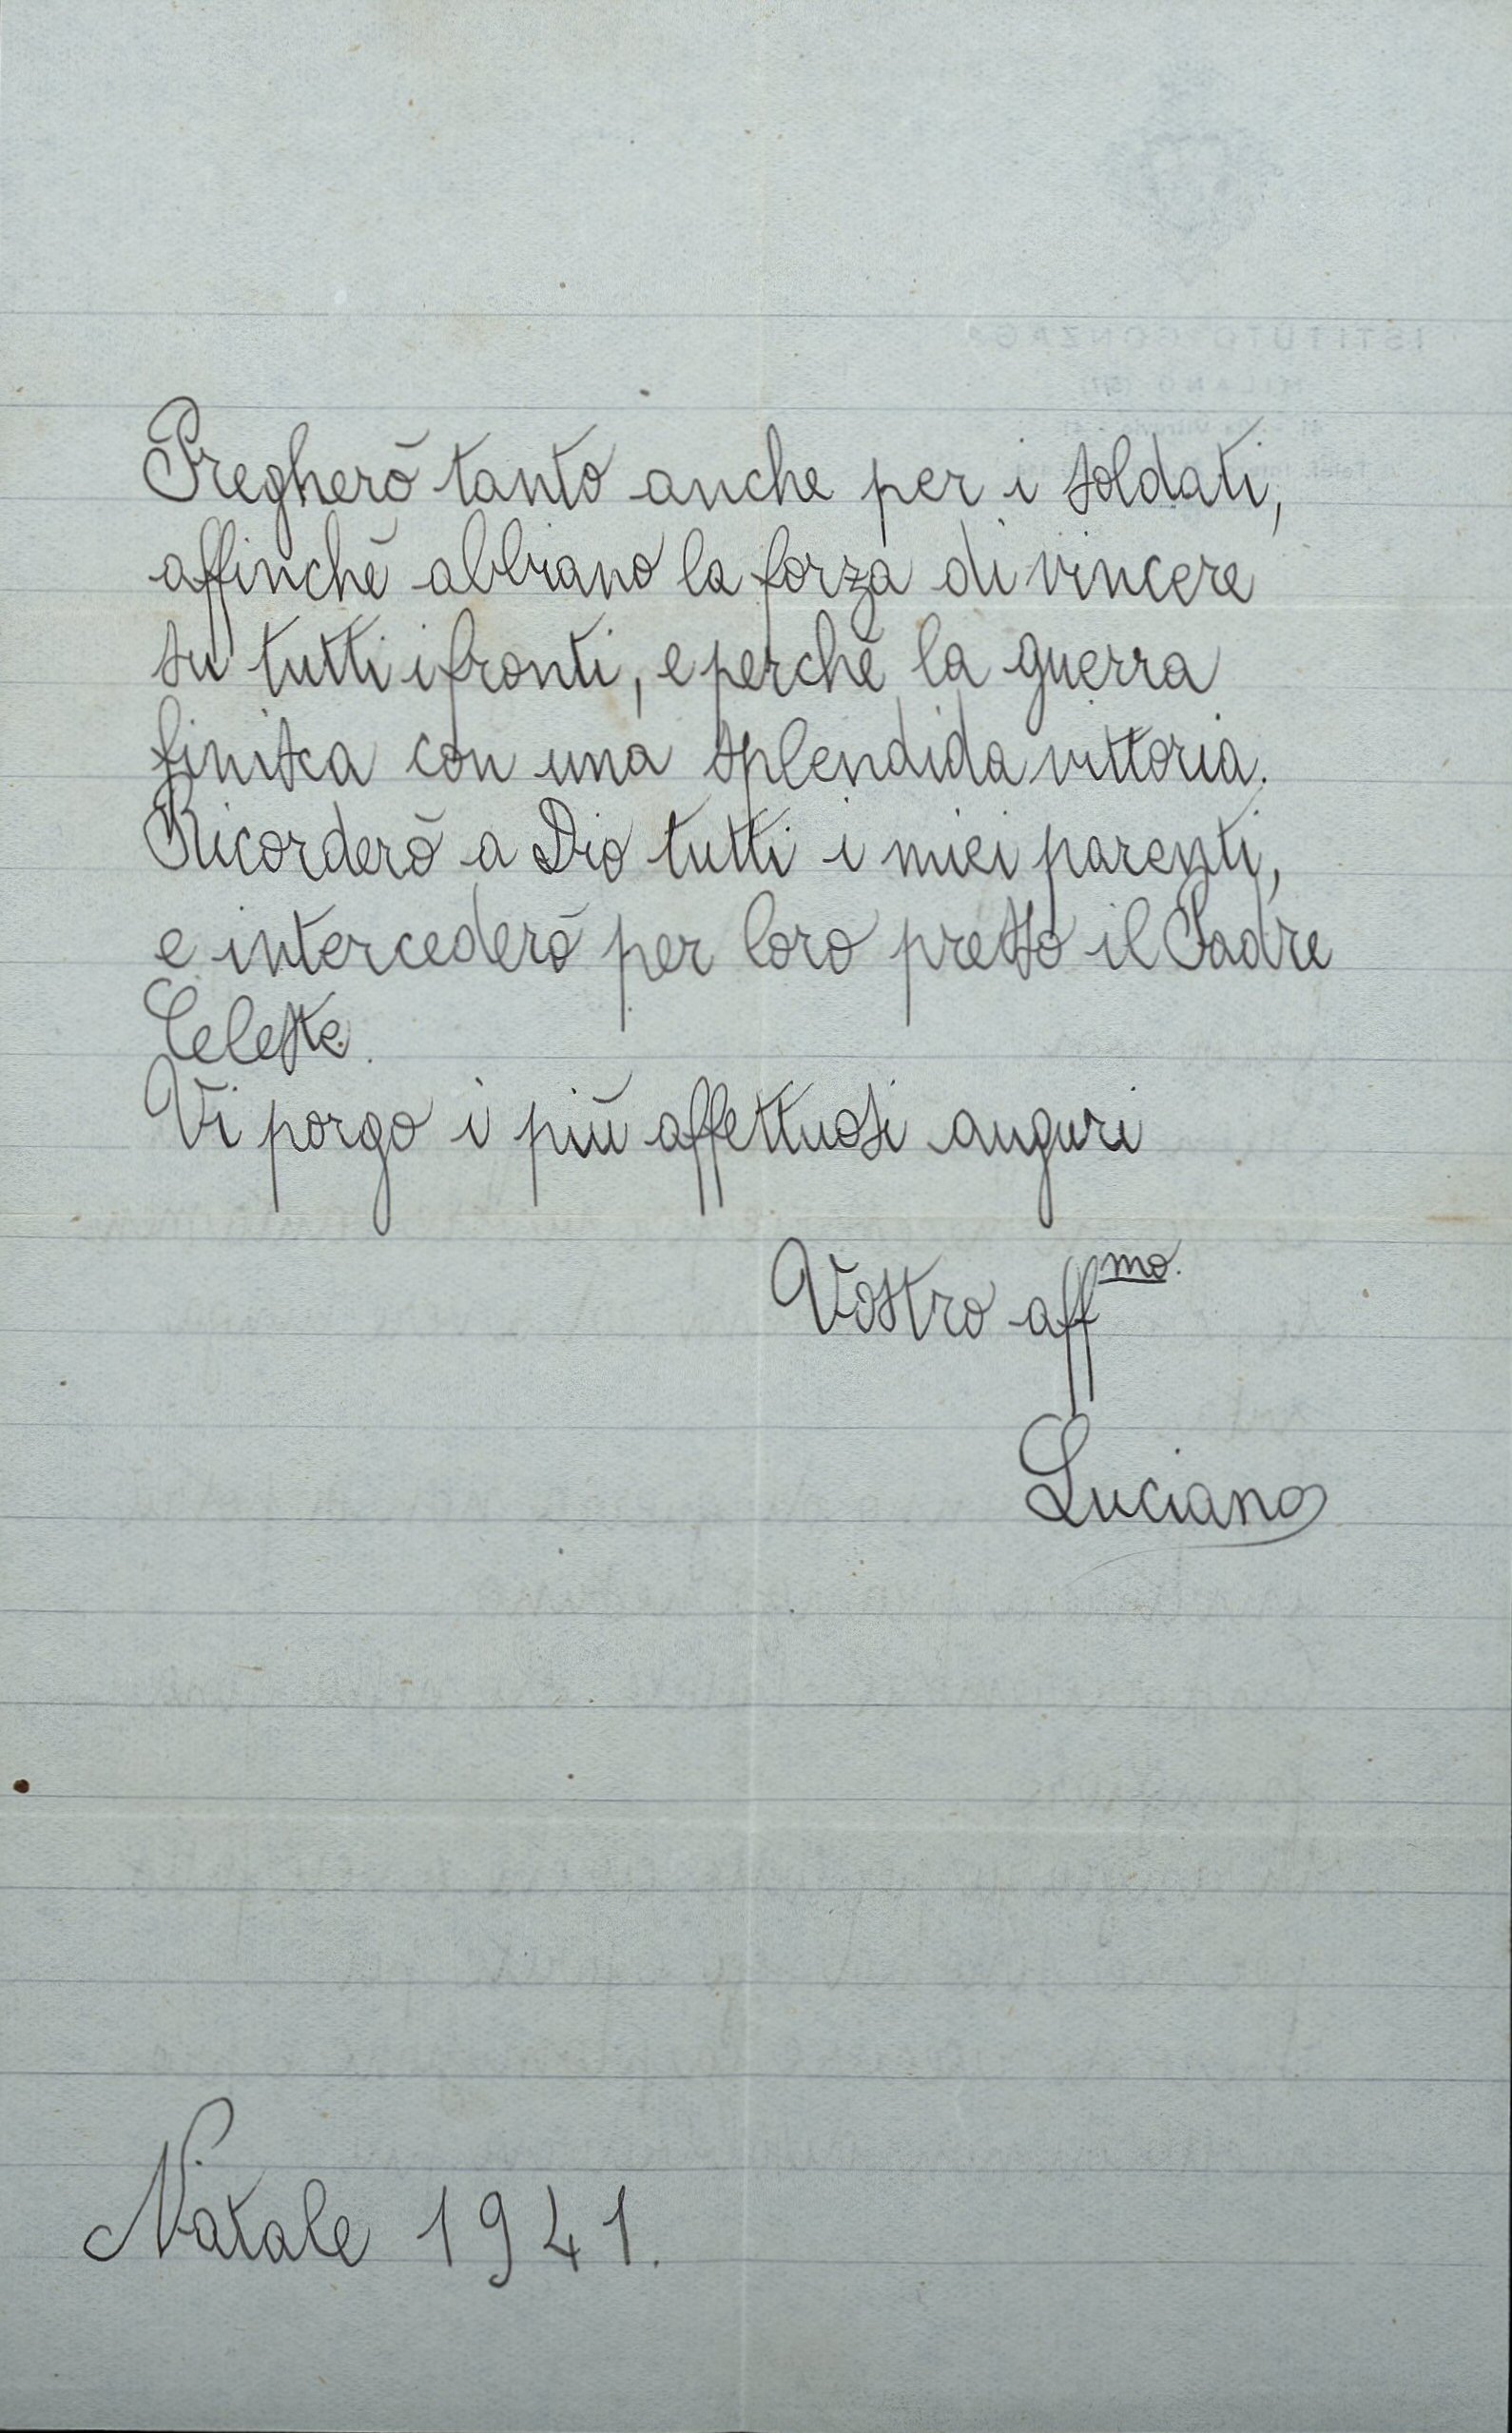 Pregherò tanto anche per i soldati,
affinchè abbiano la forza di vincere
su tutti i fronti, e perchè la guerra
finisca con una splendida vittoria.
Ricorderò a Dio tutti i miei parenti,
e intercederò per loro presso il Padre
Celeste.
Vi porgo i più affettuosi auguri
Vostro aff mo.
Luciano
Natale 1941.